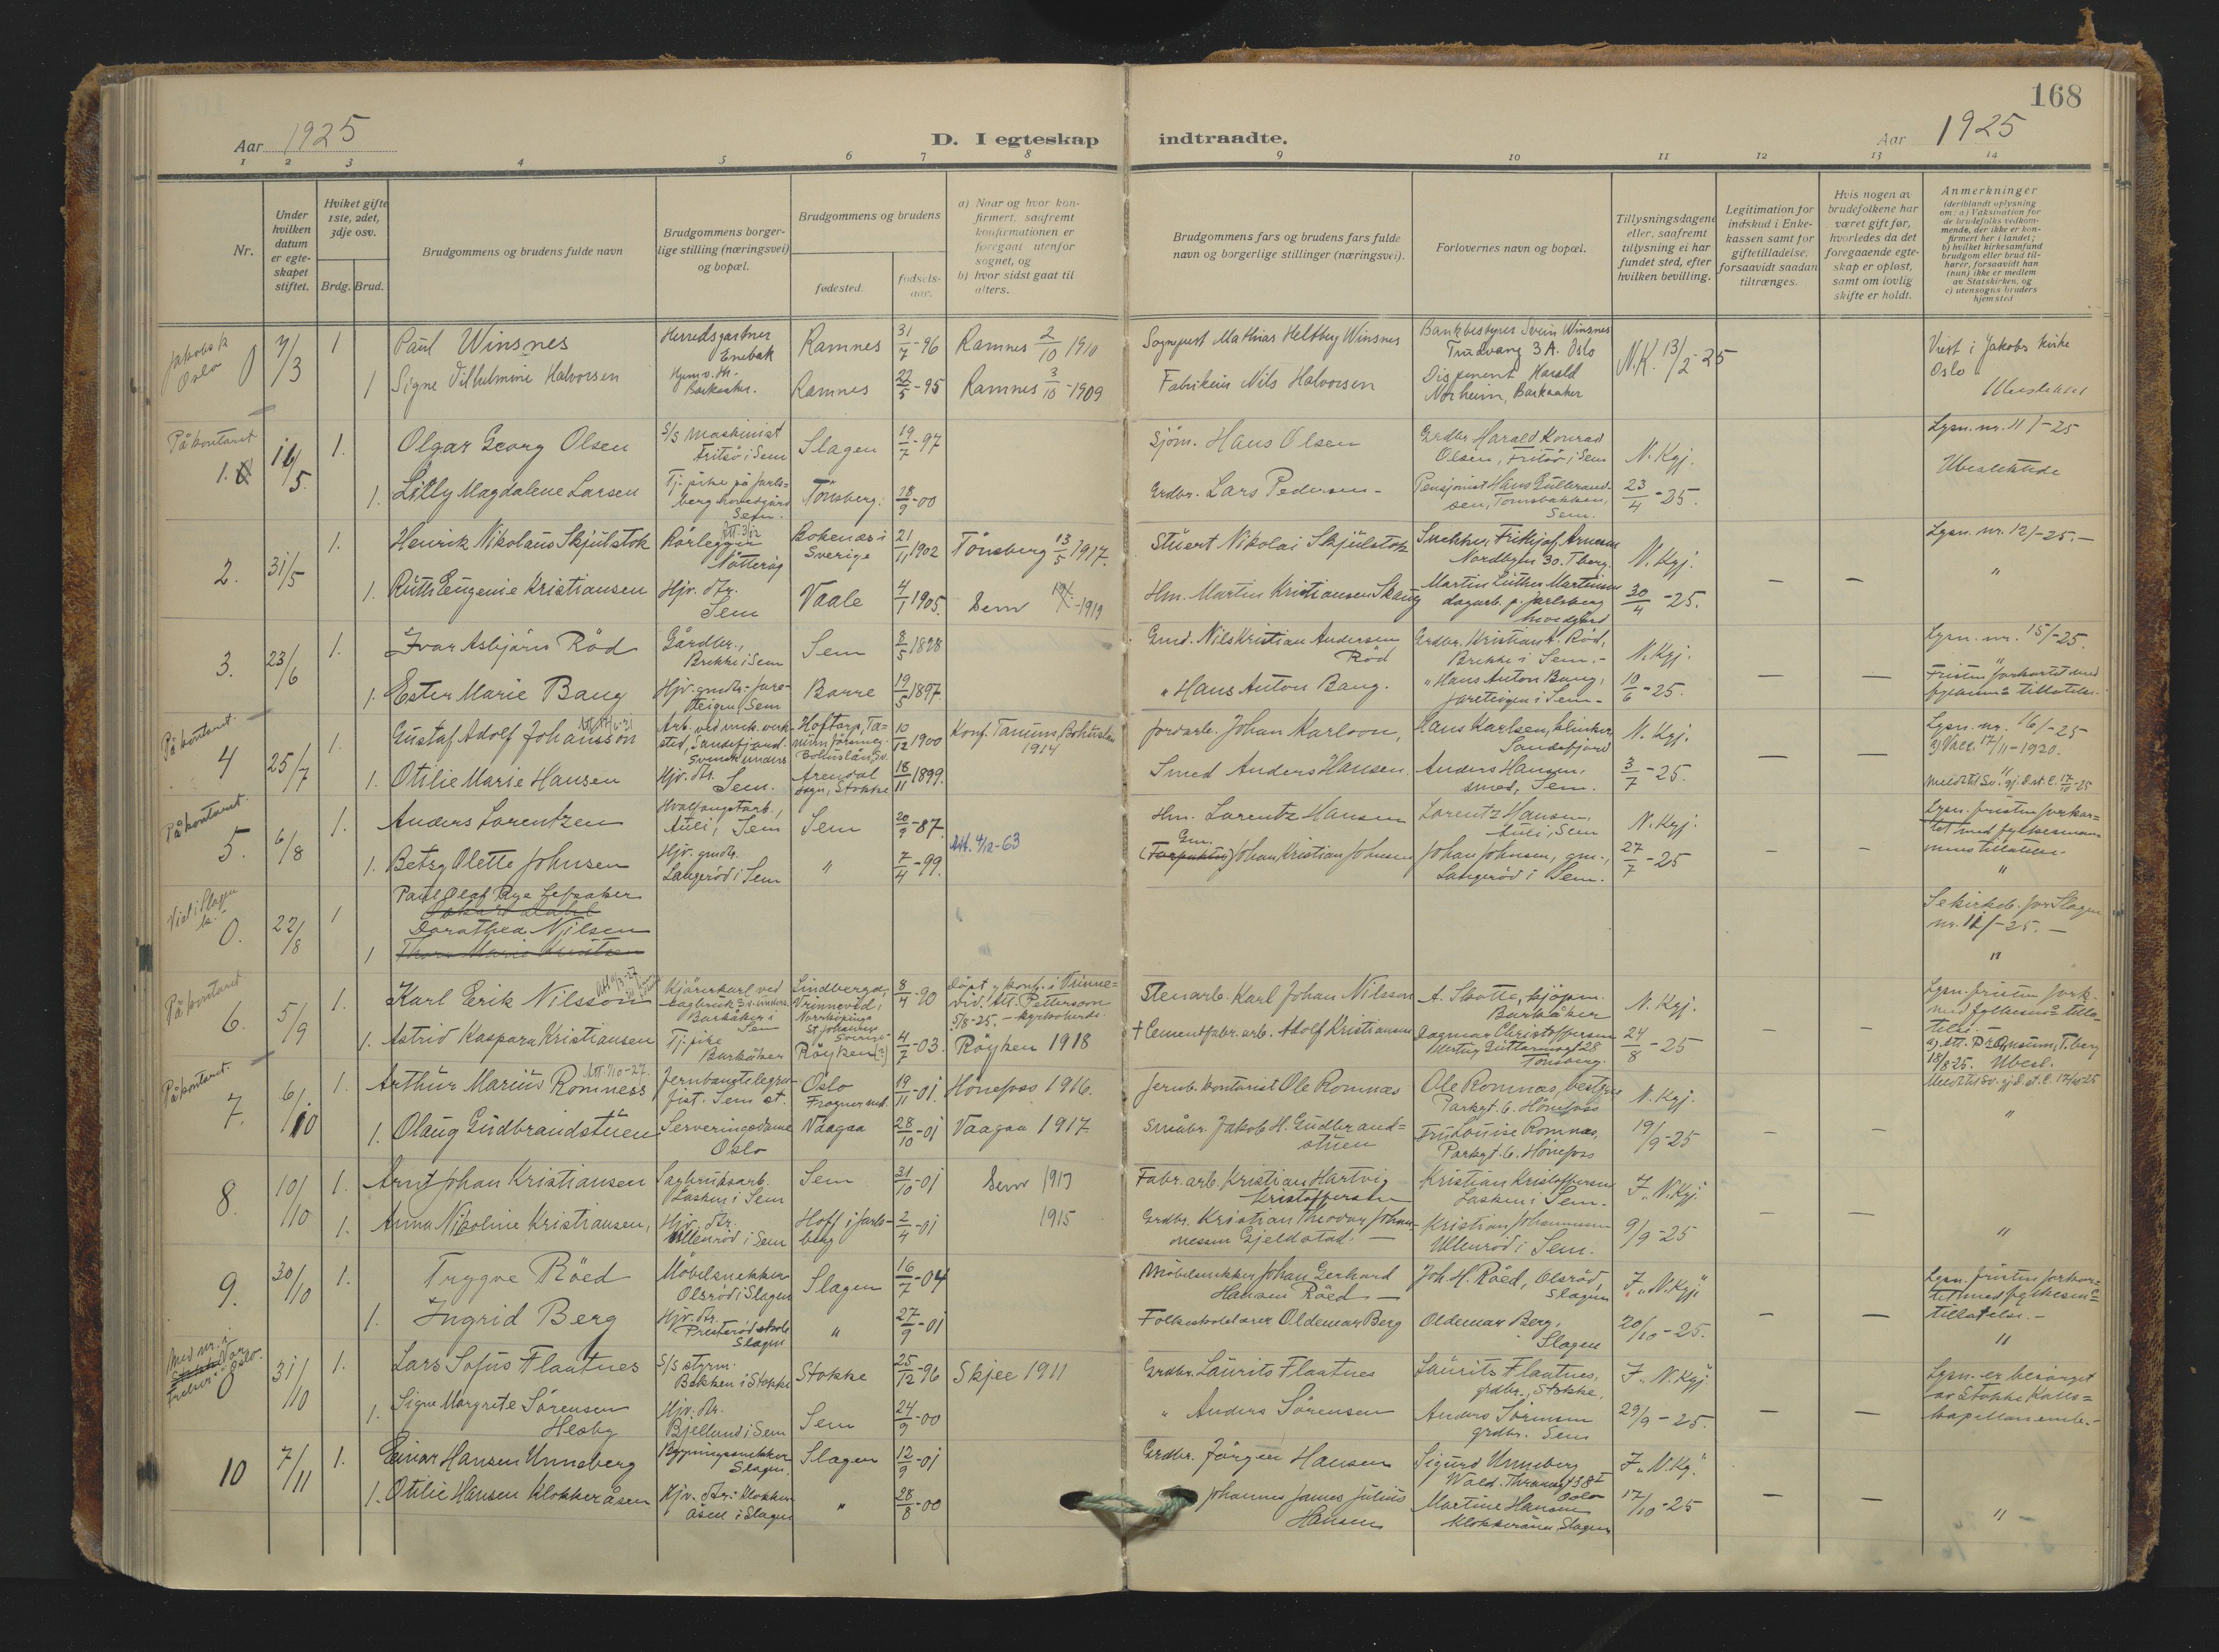 168
Aar 1925
D. I egteskap indtraadte.
Aar 1925
1 2 3 4 5 6 7 8 9 10 11 12 13 14
Nr.
Under hvilken datum er egteskapet stiftet.
Hviket gifte 1ste, 2det, 3dje osv.
Brdg. Brud.
Brudgommens og brudens fulde navn
Brudgommens borgerlige stilling (næringsvei) og bopæl.
Brudgommens og brudens
fødested.
fødselsaar.
a) Naar og hvor konfirmert, saafremt konfirmationen er foregaat utenfor sognet, og
b) hvor sidst gaat til alters.
Brudgommens fars og brudens fars fulde navn og borgerlige stillinger (næringsvei).
Forlovernes navn og bopæl.
Tillysningsdagene eller, saafremt tillysning ei har fundet sted, efter hvilken bevilling.
Legitimation for indskud i Enkekassen samt for giftetilladelse, forsaavidt saadan tiltrænges.
Hvis nogen av brudefolkene har været gift før, hvorledes da det foregaaende egteskap er opløst, samt om lovlig skifte er holdt.
Anmerkninger
(deriblandt oplysning om: a) Vaksination for de brudefolks vedkommende, der ikke er konfirmert her i landet; b) hvilket kirkesamfund brudgom eller brud tilhører, forsaavidt han (hun) ikke er medlem av Statskirken, og c) utensogns bruders hjemsted
Jakobs k Oslo 0 7/3 1 Paul Winsnes Herredsgartner Enebak Ramnes 31/7-96 Ramnes 2/10 1910 Sogneprest Mathias Heltberg Winsnes Bankbestyrer Svein Winsnes Trudvang 3 A. Oslo N.K. 13/2-25 Viet i Jakobs kirke Oslo
1 Signe Vilhelmine Halvorsen Hjemv. dtr. Barkaaker. Ramnes 22/5-95 Ramnes 3/10-1909 Fabrikeier Nils Halvorsen Disponent Harald Norheim, Barkaaker Ubeslektet
På kontoret 1. 16/5. 1. Olgar Georg Olsen S/S Maskinist Fritsø i Sem Slagen 19/7-97 Sjøm. Hans Olsen Grdbr Harald Konrad Olsen, Fritsø i Sem N. Kgj. Lysn. nr. 11/-25
1. Lilly Magdalene Larsen Tj. pike på Jarlsberg hovedgård Sem. Tønsberg. 18/9-00 Grdbr. Lars Pedersen - Pensjonist Hans Gulbrandsen, Tomsbakken, Sem. 23/4-25. Ubeslektede
2. 31/5 1. Henrik Nikolaus Skjulstok Rørlegger Nøtterøy Bokenæs i Sverige 21/11 1902 Tønsberg 13/5 1917. Stuert Nikolai Skjulstok Snekker Frithjof Arnesen Nordbyen 30. T.berg. N. Kgj. Lysn. nr. 12/-25.-
1. Ruth Eugenie Kristiansen Hjv. dtr. Sem Vaale 4/1 1905. Sem -1919 Hm. Martin Kristiansen Skaug Martin Luther Martinsen dagarb. p. Jarlsberg hovedgård 30/4-25. — — "
3. 23/6 1. Ivar Asbjørn Rød Gårdbr., Brekke i Sem Sem 8/5 1898 Gmd. Nils Kristian Andersen Rød Grdbr. Kristian A. Rød, Brekke i Sem.- N. Kgj. Lysn. nr. 15/-25.
1. Ester Marie Baug Hjv. gmdtr. Jareteigen, Sem Borre 19/5 1897. " Hans Anton Baug. " Hans Anton Baug, Jareteigen i Sem- 10/6-25. — — " Fristen forkortet med fylkesm's tillatelse.
På kontoret. 4 25/7 1. Gustaf Adolf Johansson Arb. ved mek. verksted, Sandefjord. Svensk unders Hoftorp, Tanum församl. Bohuslän, Sv. 10/12 1900 Konf. Tanum, Bohuslän 1914 Jordarb. Johan Karlson, Hans Karlsen, klinker, Sandefjord N. Kgj. Lysn. nr. 16/-25 a) Vacc. 17/11-1920.
1. Otilie Marie Hansen Hjv. dtr. Sem. Arendal sogn, Stokke 18/11 1899. Smed Anders Hansen. Anders Hansen, smed, Sem. 3/7-25. — — " Meldt til Sv. gj. d. st. C. 17/10-25
På kontoret. 5. 6/8 1. Anders Lorentzen Hvalfangstarb., Auli, Sem Sem 20/9-87. Att. 4/12-63 Hm. Lorentz Hansen Lorentz Hansen, Auli, Sem N. Kgj. Lysn. fristen forkortet med fylkesmannens tillatelse.
1. Betsy Olette Johnsen Hjv. gmdtr. Langerød i Sem " 7/4-99. Gm. Johan Kristian Johnsen Johan Johnsen, gm., Langerød i Sem. 27/7-25 - - "
Viet i Slagen k. 0. 22/8 1 Paul Olaf Rye Lefsaker
1 Dorothea Nilsen Se kirkeb. for Slagen nr. 12/-25.- "
På kontoret 6. 5/9 1. Karl Erik Nilsson Kjørerkarl ved sagbruk Sv. unders. Barkåker i Sem Lindberga, Vrinnevid, Norrköpings St Johannes Sverige 8/4-90 Döpt og konf. i Vrinnevid. Att. Pettersson 5/8-25. - kyrkoherde. Stenarb. Karl Johan Nilsson A. Skotte, kjøpm. Barkåker N. Kgj. Lysn. fristen fork. med fylkesm's tillatelse.-
1. Astrid Kaspara Kristiansen Tj. pike Barkåker Røyken (?) 4/7-03. Røyken 1918 † Cementfabr. arb. Adolf Kristiansen Dagmar Christoffersen Hertug Guttormsgt 28 Tønsberg. 24/8-25 — — 18/8 25. Ubesl. Meldt til Sv. gj. d. st. C. 17/10 25
På kontoret. 7. 6/10 1. Arthur Marius Romness Att. 1/10-27. Jernbanetelegrafist. Sem st. Oslo Frogner mh. 19/11-01. Hønefoss 1916. Jernb. kontorist Ole Romnæs Ole Romnæs, vestgre Parkgt. 6. Hønefoss N. Kgj.
1. Olaug Gudbrandstuen Serveringsdame Oslo Vaagaa 28/10-01 Vaagaa 1917 Småbr. Jakob H. Gudbrandstuen Fru Louise Romnæs, Parkgt. 6. Hønefoss 19/9-25 — — "
8. 10/10 1. Arnt Johan Kristiansen Sagbruksarb. Lasken i Sem Sem 31/10-01 Sem 1917 Fabr. arb. Kristian Hartvig Kristoffersen Kristian Kristoffersen Lasken i Sem. F. "N. Kgj."
1. Anna Nikoline Kristiansen, Hjv. dtr. Ullenrød i Sem Hoff i Jarlsberg 2/4-01 1915 Grdbr. Kristian Theodor Johannessen Gjeldstad. — Kristian Johannessen Ullenrød i Sem. 9/9-25 — — "
9. 30/10 1. Trygve Røed Møbelsnekker Olsrød i Slagen Slagen 16/7-04 Møbelsnekker Johan Gerhard Hansen Røed — Joh. H. Røed, Olsrød, Slagen F. "N. Kgj." Lysn. fristen forkortet med fylkesm's tillatelse.-
1. Ingrid Berg Hjv. dtr. Presterød skole Slagen " 27/9-01 Folkeskolelærer Oldemar Berg Oldemar Berg, Slagen 20/10-25. — — "
0 31/10 1. Lars Sofus Flaatnes S/S styrm. Bakken i Stokke Stokke 25/12-96 Skjee 1911 Grdbr. Laurits Flaatnes Laurits Flaatnes, grdbr., Stokke, F. "N. Kgj." Lysn. er besørget av Stokke Kallskapellanemb.-
1. Signe Margrete Sørensen Hesby Hjv. dtr. Bjellund i Sem Sem 24/9-00 " Anders Sørensen Anders Sørensen grdbr. Sem 29/9-25. — —
10 7/11 1. Einar Hansen Unneberg Bygningssnekker Slagen. Slagen 12/9-01 Grdbr. Jørgen Hansen Sigurd Unneberg Wald. Thranesgt 38 I Oslo F. "N. Kg."
1. Otilie Hansen Klokkeråsen Hjv. dtr. Klokkeråsen i Slagen " 28/8-00 Johannes James Julius Hansen Martine Hansen Klokkeråsen, Slagen 17/10-25 — — "